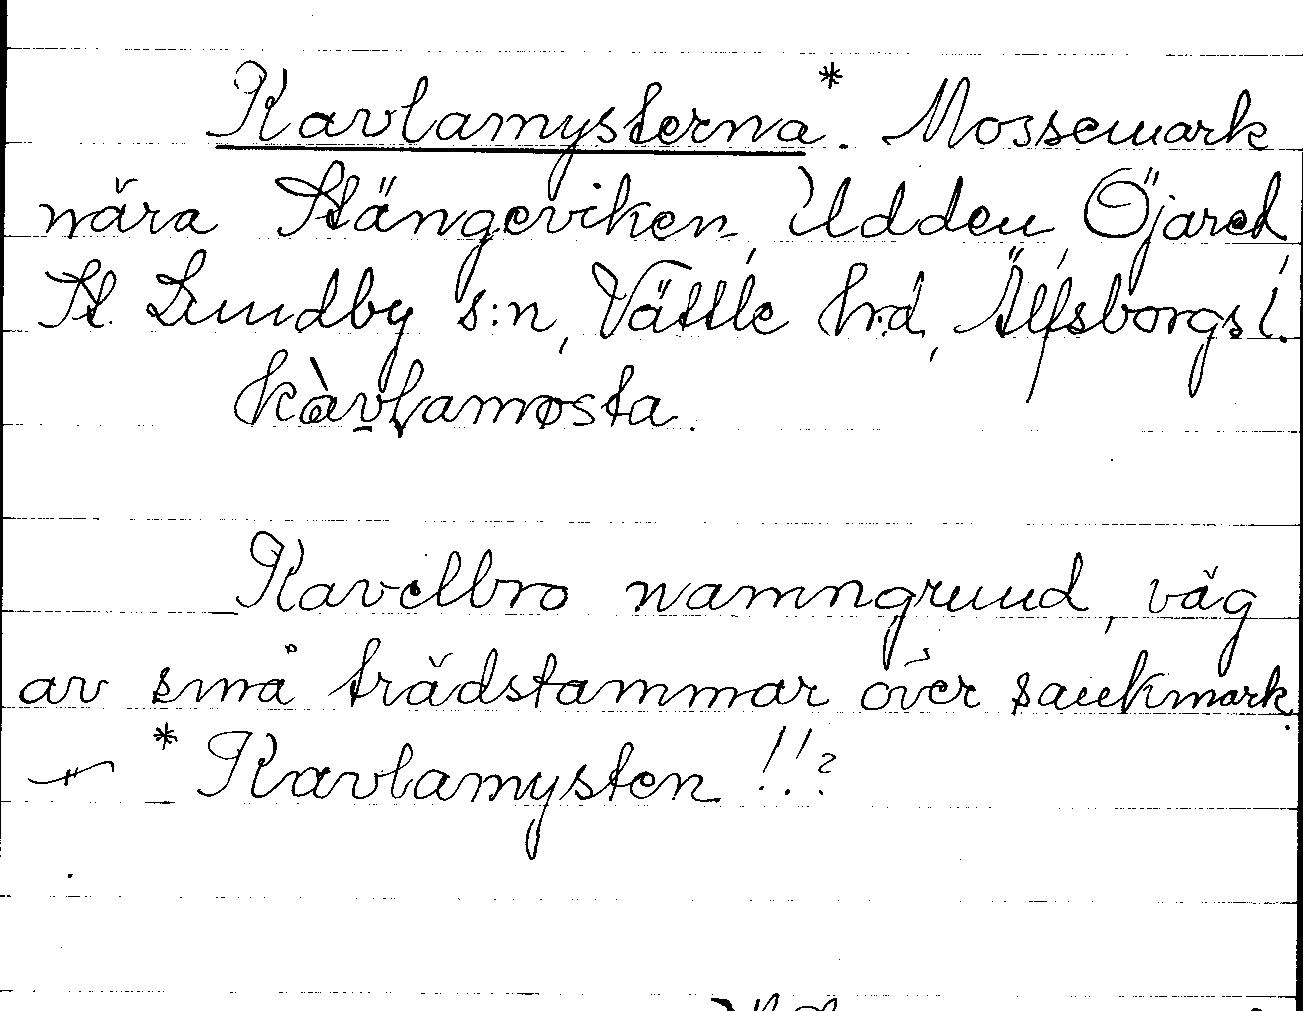 Kavlamysterna*. Mossemark
nära Stängeviken, Udden, Öjared,
St. Lundby s:n, Vättle hrd, Älfsborgs l.
kàvlamøsta.
Kavelbro namngrund, väg
av små trädstammar över sankmark.
* Kavlamysten !!?